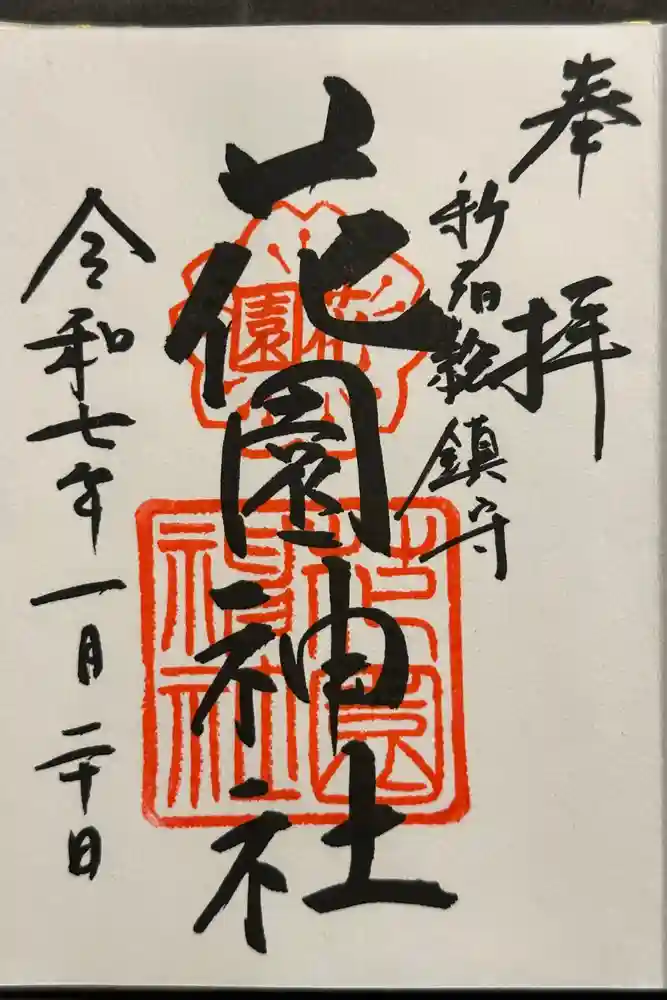 奉拝
新宿総鎮守
花園神社
令和七年一月二十日
花園神社